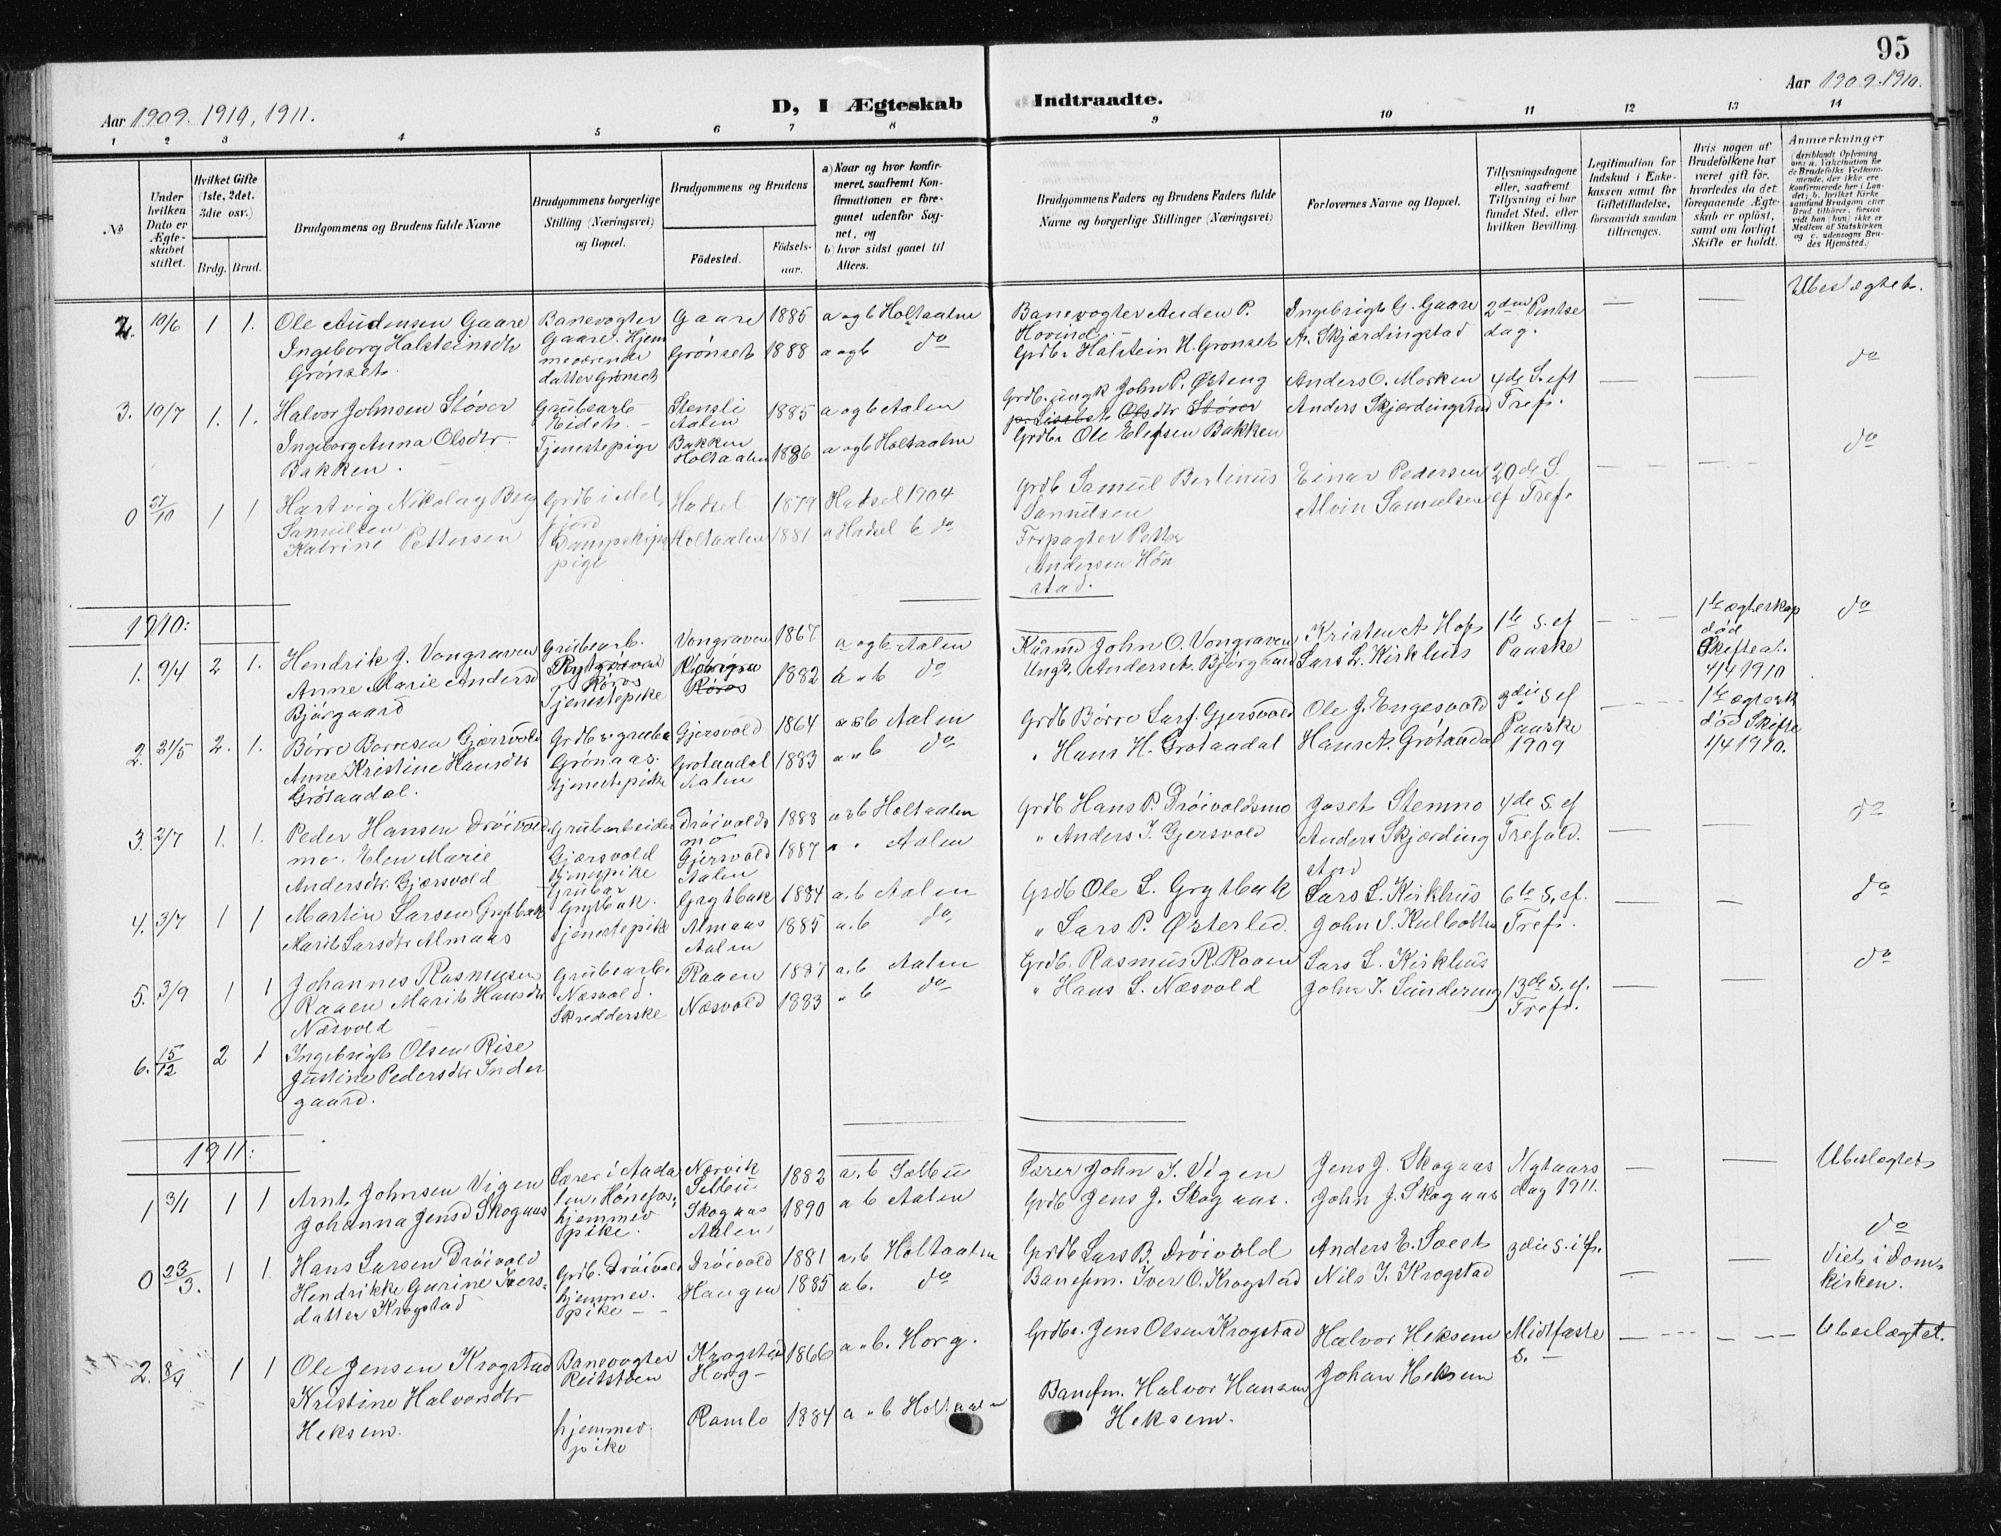 95
Aar 1909. 1910, 1911.
D, I Ægteskab
Indtraadte.
Aar 1909. 1910.
1 2 3 4 5 6 7 8
9 10 11 12 13 14
No
Under hvilken Dato er Ægteskabet stiftet.
Hvilket Gifte (1ste, 2det. 3die osv.)
Brdg. Brud.
Brudgommens og Brudens fulde Navne
Brudgommens borgerlige Stilling (Næringsvei) og Bopæl.
Brudgommens og Brudens
Födested.
Födselsaar.
a) Naar og hvor konfirmeret, saafremt Konfirmationen er foregaaet udenfor Sognet, og
b) hvor sidst gaaet til Alters.
Brudgommens Faders og Brudens Faders fulde Navne og borgerlige Stillinger (Næringsvei)
Forlovernes Navne og Bopæl.
Tillysningsdagene eller, saafremt Tillysning ei har fundet Sted, efter hvilken Bevilling.
Legitimation for Indskud i Enkekassen samt for Giftetilladelse, forsaavidt saadan tiltrænges.
Hvis nogen af Brudefolkene har været gift för, hvorledes da det foregaaende Ægteskab er oplöst, samt om lovligt Skifte er holdt.
Anmerkninger
2. 10/6 1 1. Ole Audensen Gaare Banevogter Gaare 1885 a og b Holtaalen Banevogter Auden P. Ingebrigt G. Gaare 2den Pintse — — Ubeslægtet.
Ingeborg Halsteinsdtr Gaare. Hjem Grönset 1888 a og b do Hovind. — A. Skjærdingstad dag.
Grönset. meværende Grdb. Halstein H. Grönset
datter Grönset
3. 10/7 1. 1. Halvor Johnsen Stöver Grubearb Stensli 1885 a og b Aalen Grdb. ungk John P. Østeng Anders O. Morken 4de S. eft — — do
Aalen Anders Skjærdingstad Tref.
Ingeborg Anna Olsdtr Tjenestepige Bakken 1886 a og b Holtaalen Grdb. Ole Elefsen Bakken
Bakken. Holtaalen
0 27/10 1 1 Hartvig Nikolay Berg Grdb i Mel Hadsel 1879 Hadsel 1904 Grdb Samuel Bertinus Einar Pedersen 20de S. — — do
Samuelsen fjord Samuelsen Alvin Samuelsen ef Tref.
Katrine Pettersen Dampskips Holtaalen 1881 a Hadsel b do Petter
pige Andersen Hön
stad.
1910:
1. 9/4 2 1. Hendrik J. Vongraven Grubearb. Vongraven 1867 a og b Aalen Kaarmd John O. Vongraven Kristen A Hof 1te S. ef 1te ægteskap do
Anne Marie Andersd Röros Röros 1882 a " b do Ungk. Anders A. Bjørgaard Lars L. Kirkhus Paaske død
Bjørgaard Tjenestepike Skifteat.
4/4 1910
2. 21/5 2. 1. Børre Borresen Gjersvold Grdb. & grubea Gjersvold 1864 a & b Aalen Grdb Børre Larf. Gjersvold Ole J. Engesvold 3die S. ef 1te ægtesk
Anne Kristine Hansdtr Grönaas. Grotaadal 1883 a " b do " Hans H. Grotaadal Hans A. Grótaadal Paaske død Skifte
Grótaadal. Tjenestepike Aalen 1909 1/4 1910.
3. 2/7 1. 1. Peder Hansen Dröivold Grubarbeider Dröivolds 1888 a & b Holtaalen Grdb Hans P. Dröivoldsmo Joset Stemno 4de S. ef — — do
mo. Elen Marie Gjærsvold mo Gjersvold 1887 a " Aalen " Anders J. Gjersvold Anders Skjærding Trefold.
Andersdtr. Gjærsvold tjenestepike Aalen stad
4. 3/7 1 1 Martin Larsen Grytbak Grubar Grytbak. Grytbak 1884 a. b Aalen Grdb Ole L. Grytbak Lars L. Kirkhus 6te S. ef. — — do
Marit Larsdtr Almaas Tjenestepike Almaas 1885 a. b do " Lars P. Østerlid. John J. Kulbotten Tref.
Aalen
5. 3/9 1 1 Johannes Rasmusen Grubearb. Raaen 1887 a. b Aalen Grdb. Rasmus R. Raaen Lars L. Kirkhus — — do
Raaen Marit Hansdtr Næsvold. Næsvold 1883 " b do " Hans L. Næsvold John J. Lundeeng 13de S. ef.
Næsvold Skredderske Tref.
6. 15/12 2 1 Ingebrigt Olsen Rise
Justine Pedersdtr Inder
gaard.
1911:
1 3/1 1 1 Arnt Johnsen Vigen Lærer i Aada Nervik 1882 a. b Selbu Lærer John J. Vigen Jens J. Skogaas Nytaars — — Ubeslægtet
Johanna Jensd Skogaas len, Hönefos, Selbu 1890 a b Aalen Grdb Jens J. Skogaas. John J. Skogaas dag 1911.
hjemmev Skogaas
pike. Aalen
0 23/3. 1 1. Hans Larsen Dröivold Grdb. Dröivold Dröivold 1881 a. b Holtaalen Grdb Lars B. Dröivold Anders E. Soeet 3die S. i f. — — do
Hendrikke Gurine Ivers- hjemmev. Haugen 1885 a b. do Banefm. Iver O. Krogstad Nils I. Krogstad Viet i Dom-
datter Krogstad pike — kirken.
2. 8/4 1 1 Ole Jensen Krogstad Banevogter Krogstad 1866 a " b. Horg. Grdbr. Jens Olsen Krogstad Halvor Heksem Midtfaste — — Ubeslægtet.
Kristine Halvorsdtr Reitstöen Horg — Johan Heksem S. —
Heksem. hjemmev. Ramlo 1884 a " b Holtaalen Banefm. Halvor Hansen
pike Heksem.